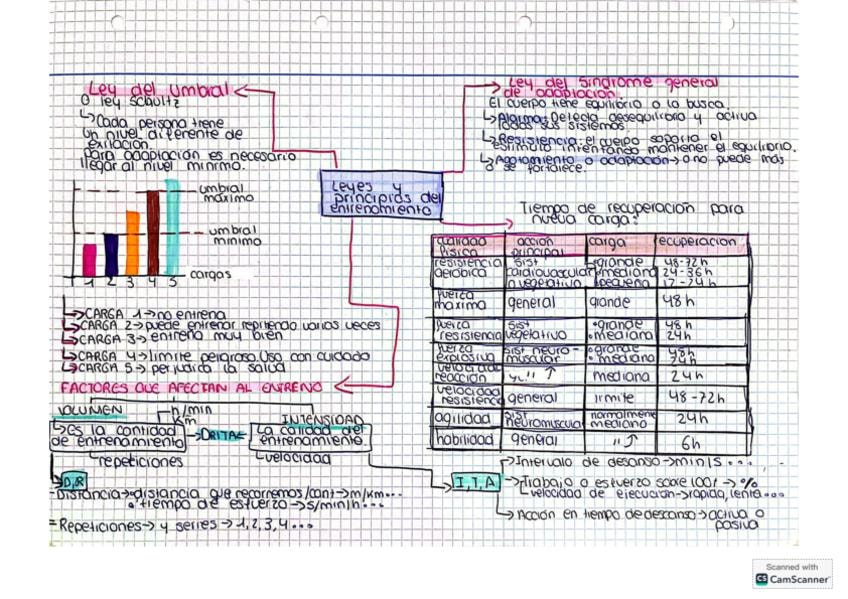 Ley del umbral
O ley Schultz
↳Cada persona tiene
un nivel diferente de
exitación.
Para adaptación es necesario
llegar al nivel minimo.
umbral
máximo
umbral
minimo
cargas
1 2 3 4 5
↳CARGA 1→no entrena
↳CARGA 2→puede entrenar repitiendo varias veces
↳CARGA 3→entrena muy bien
↳CARGA 4→limite peligroso. Uso con cuidado
↳CARGA 5→perjudica la salud
Leyes y
principios del
entrenamiento
Ley del Sindrome general
de adaptación.
El cuerpo tiene equilibrio o la busca.
↳Alarma: Detecta desequilibrio y activa
todos sus sistemas.
↳Resistencia: el cuerpo soporta el
estimulo intentando mantener el equilibrio.
↳Agotamiento o adaptación→o no puede más
o se fortalece.
Tiempo de recuperación para
nueva carga:
cualidad física | acción principal | carga | recuperacion
resistencia aeróbica | sist cardiovascular n vegetativo | •grande •mediana •pequeña | 48-72h 24-36h 12-24h
fuerza maxima | general | grande | 48h
fuerza resistencia | sist vegetativo | •grande •mediano | 48h 24h
fuerza explosiva | sist neuro-muscular | •grande •mediano | 48h
velocidad reacción | " ↑ | mediana | 24h
velocidad resistencia | general | limite | 48-72h
agilidad | sist neuromuscular | normalmente mediano | 24h
habilidad | general | " ↑ | 6h
FACTORES QUE AFECTAN AL ENTRENO
VOLUMEN
h/min
km
↳Es la cantidad
de entrenamiento
↳repeticiones
→DRITA←
INTENSIDAD
La calidad del
entrenamiento
↳velocidad
D,R
-Distancia→distancia que recorremos/cant→m/km...
•tiempo de esfuerzo→s/min/h...
-Repeticiones→y series→1,2,3,4...
I,T,A
→Intervalo de desanso→min/s...
→Trabajo o esfuerzo sobre 100%→%
↳velocidad de ejecución→rapida, lenta...
→Acción en tiempo de descanso→activa o
pasiva
Scanned with
CS CamScanner